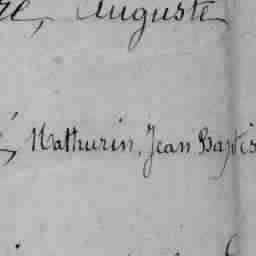 re, Auguste
é, Mathurin, Jean Baptis